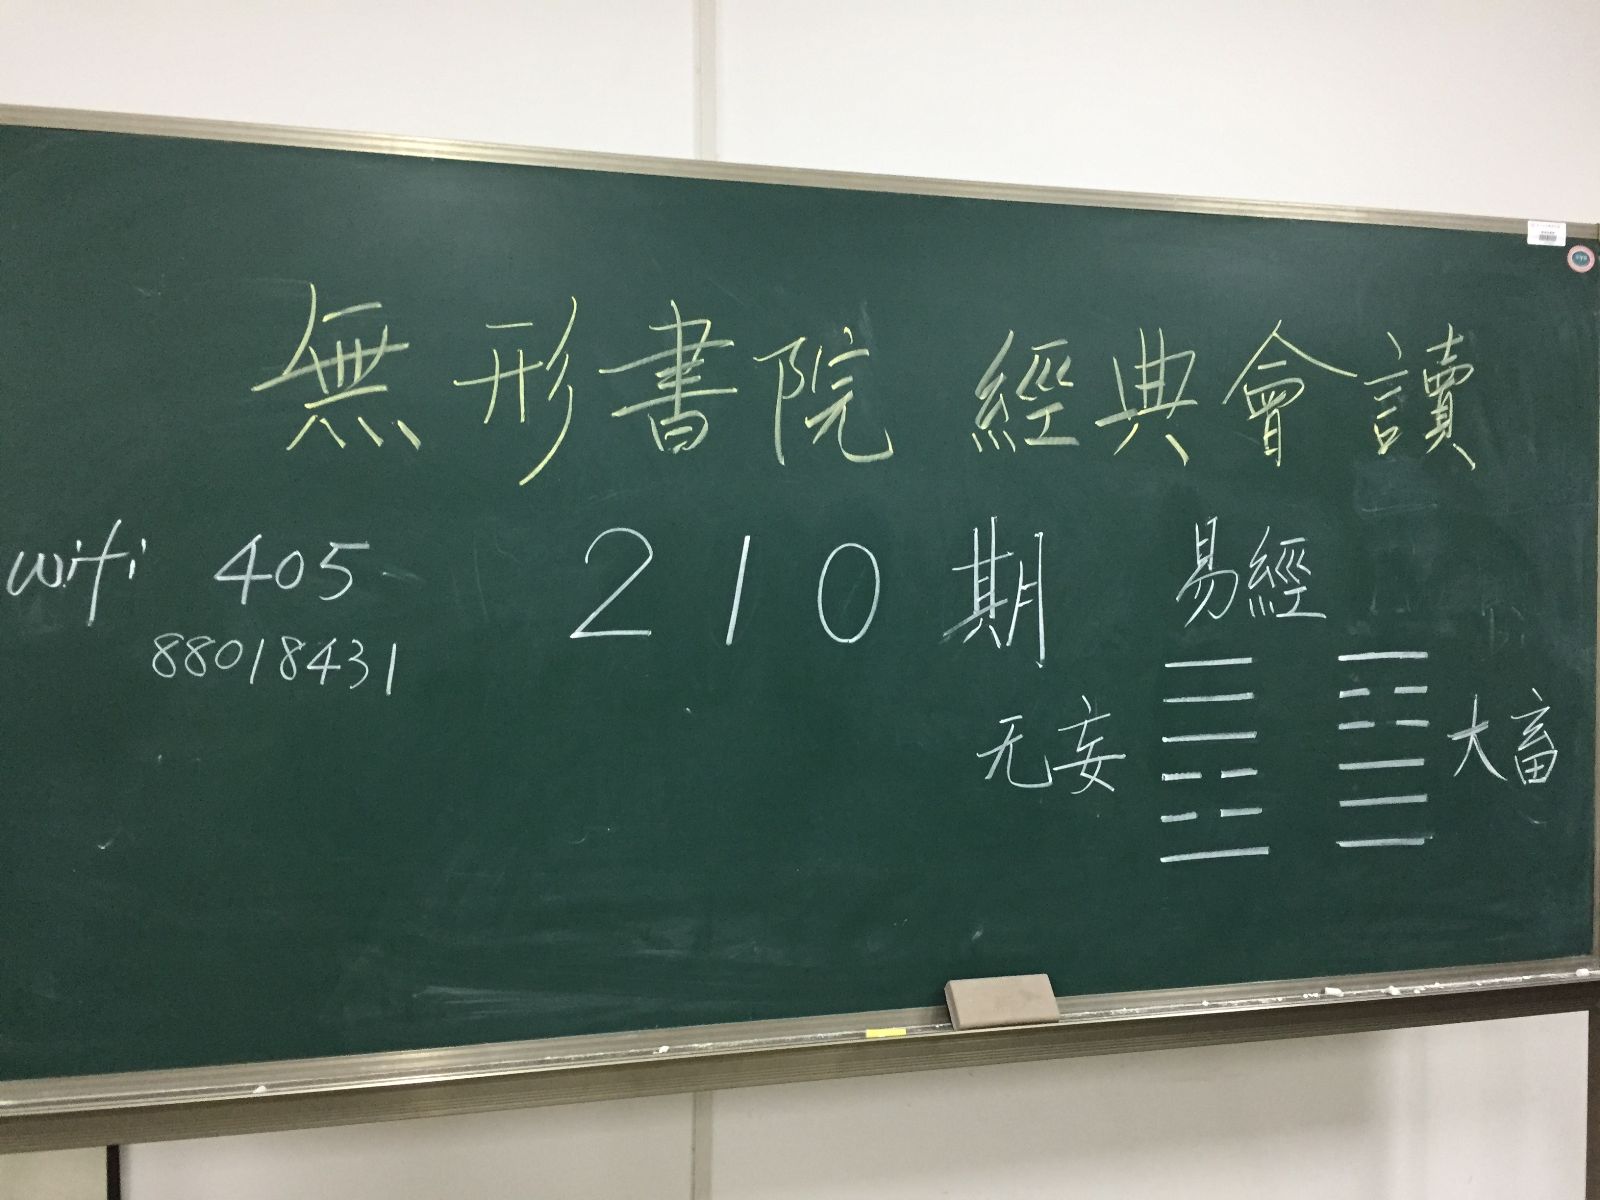 無形書院 經典會讀
wifi 405
88018431
210期
易經
无妄
大畜